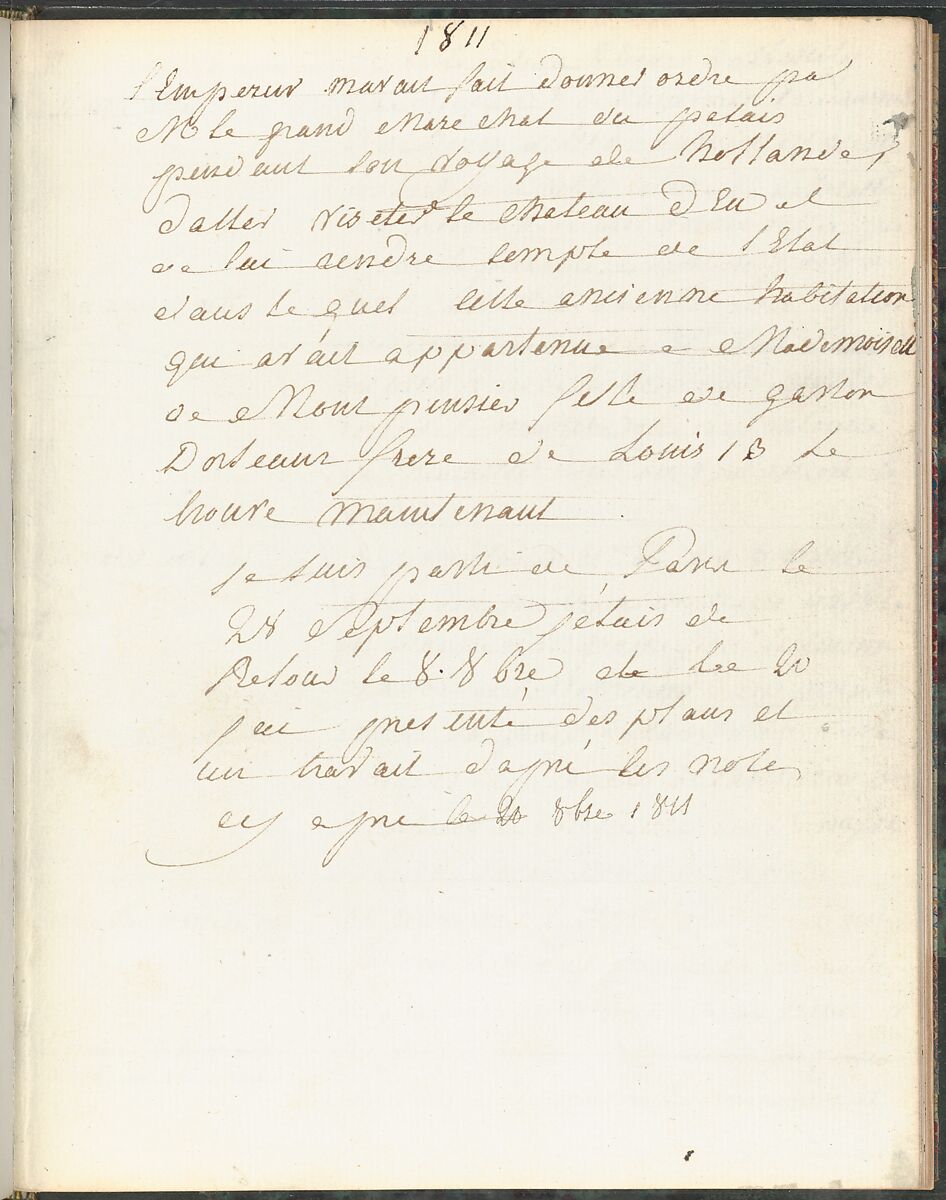 1811
l'Empereur mavait fait donner ordre pa
M le grand Marechal du palais
pendant son voyage de hollande,
daller visiter le chateau d'Eu et
de lui rendre compte de l'Etat
dans le quel cette ancienne habitation
qui avait appartenue a Mademoiselle
de Mont pensier fille de gaston
Dorleans frere de Louis 13 se
trouve maintenant
je suis parti de Paris le
28 Septembre j'etais de
Retour le 8. 8bre et le 20
jai presenté des plans et
un travail dapré les notes
cy apré le 20 8bre 1811